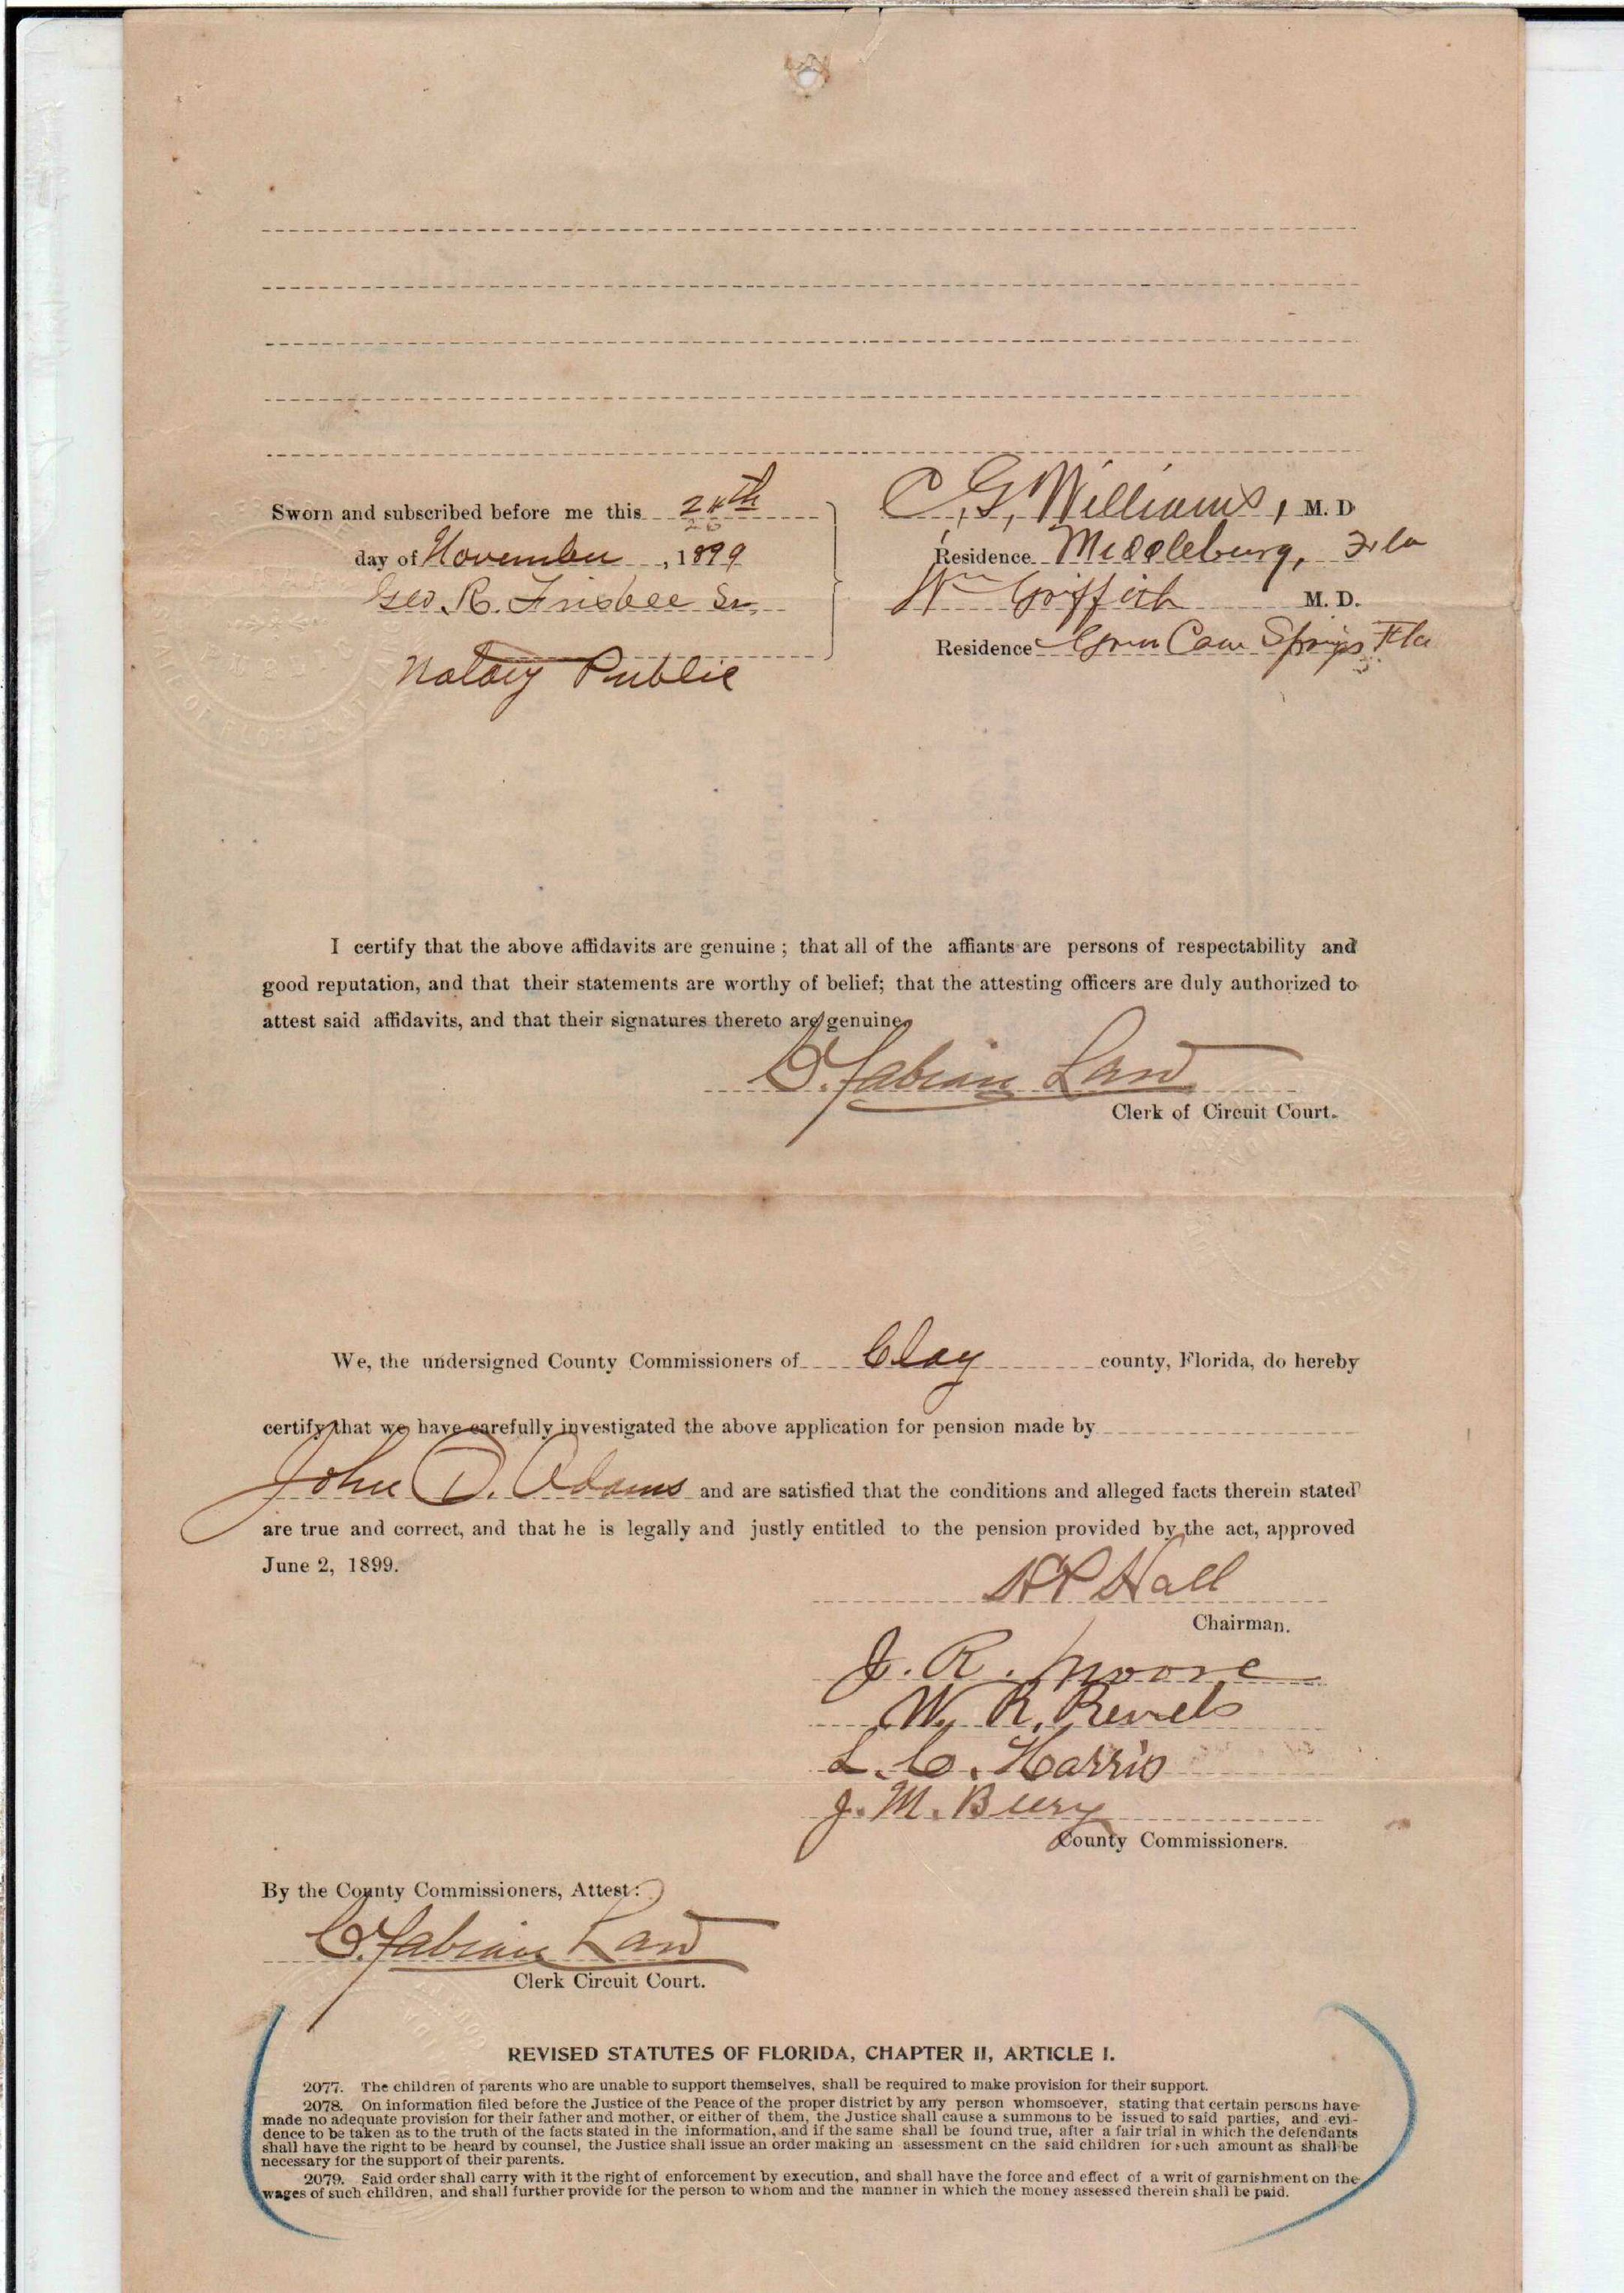 Sworn and subscribed before me this 24th
day of November, 1899
Geo. R. Frisbee Sr.
Notary Public
C. G. Williams, M. D.
Residence Middleburg, Fla
Wm Griffith M. D.
Residence Green Cove Springs Fla
I certify that the above affidavits are genuine; that all of the affiants are persons of respectability and
good reputation, and that their statements are worthy of belief; that the attesting officers are duly authorized to
attest said affidavits, and that their signatures thereto are genuine.
C. Fabian Law
Clerk of Circuit Court.
We, the undersigned County Commissioners of Clay county, Florida, do hereby
certify that we have carefully investigated the above application for pension made by
John D. Adams and are satisfied that the conditions and alleged facts therein stated
are true and correct, and that he is legally and justly entitled to the pension provided by the act, approved
June 2, 1899.
Hall
Chairman.
J. R. Moore
W. R. Revels
L. C. Harris
J. M. Bury
County Commissioners.
By the County Commissioners, Attest:
C. Fabian Law
Clerk Circuit Court.
REVISED STATUTES OF FLORIDA, CHAPTER II, ARTICLE I.
2077. The children of parents who are unable to support themselves, shall be required to make provision for their support.
2078. On information filed before the Justice of the Peace of the proper district by any person whomsoever, stating that certain persons have
made no adequate provision for their father and mother, or either of them, the Justice shall cause a summons to be issued to said parties, and evi-
dence to be taken as to the truth of the facts stated in the information, and if the same shall be found true, after a fair trial in which the defendants
shall have the right to be heard by counsel, the Justice shall issue an order making an assessment on the said children for such amount as shall be
necessary for the support of their parents.
2079. Said order shall carry with it the right of enforcement by execution, and shall have the force and effect of a writ of garnishment on the
wages of such children, and shall further provide for the person to whom and the manner in which the money assessed therein shall be paid.